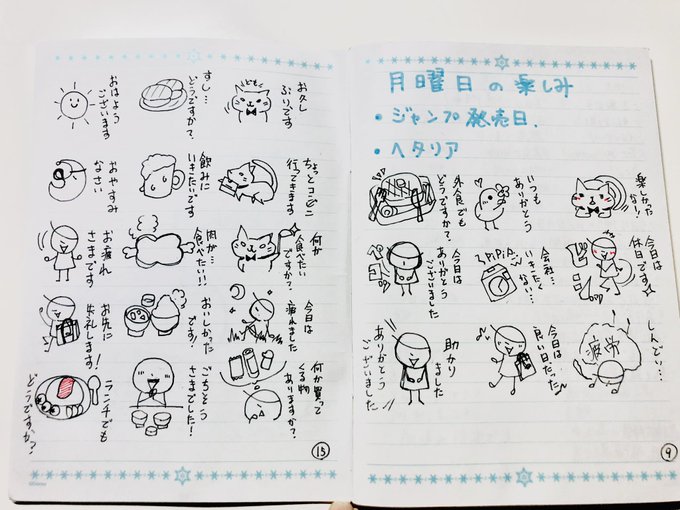 どうも
お久し
ぶりです
すし…
どうですか?
おはよう
ございます
ちょっとコンビニ
行ってきます
飲みに
いきたいです
おやすみ
なさい
何か
食べたい
ですか?
肉が…
食べたい!!
お疲れ
さまです
今日は
疲れました
おいしかった
です!
お先に
失礼します!
何か買って
くる物
ありますか?
ごちそう
さまでした!
ランチでも
どうですか?
15
月曜日の楽しみ
・ジャンプ発売日.
・ヘタリア
楽しかった
なり!
いつも
ありがとう
外食でも
どうですか?
今日は
休日です
会社…
いきたく
ない…
PiPiPi
今日は
ありがとう
ございました
しんどい…
疲労
今日は
良い日だった
助かり
ました
ありがとう
ございました
9